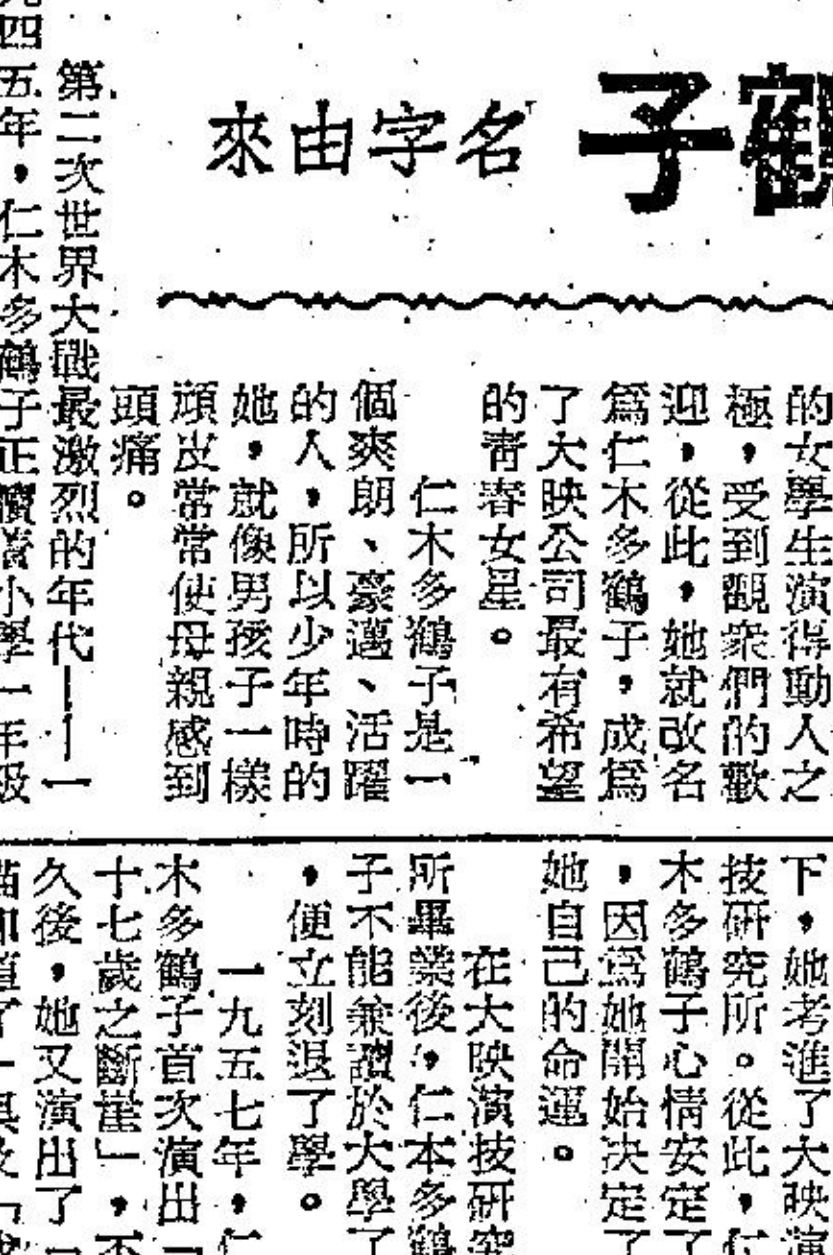 子
名字由來
的女學生演得動人之
極，受到觀衆們的歡
迎，從此，她就改名
爲仁木多鶴子，成爲
了大映公司最有希望
的青春女星。
仁木多鶴子是一
個爽朗、豪邁、活躍
的人，所以少年時的
她，就像男孩子一樣
頑皮常常使母親感到
頭痛。
第二次世界大戰最激烈的年代——一
四五年，仁木多鶴子正讀着小學一年級
下，她考進了大映演
技研究所。從此，仁
木多鶴子心情安定了
，因爲她開始决定了
她自己的命運。
在大映演技研究
所畢業後，仁本多鶴
子不能兼讀於大學了
，便立刻退了學。
一九五七年，仁
木多鶴子首次演出「
十七歲之斷崖」，不
久後，她又演出了「